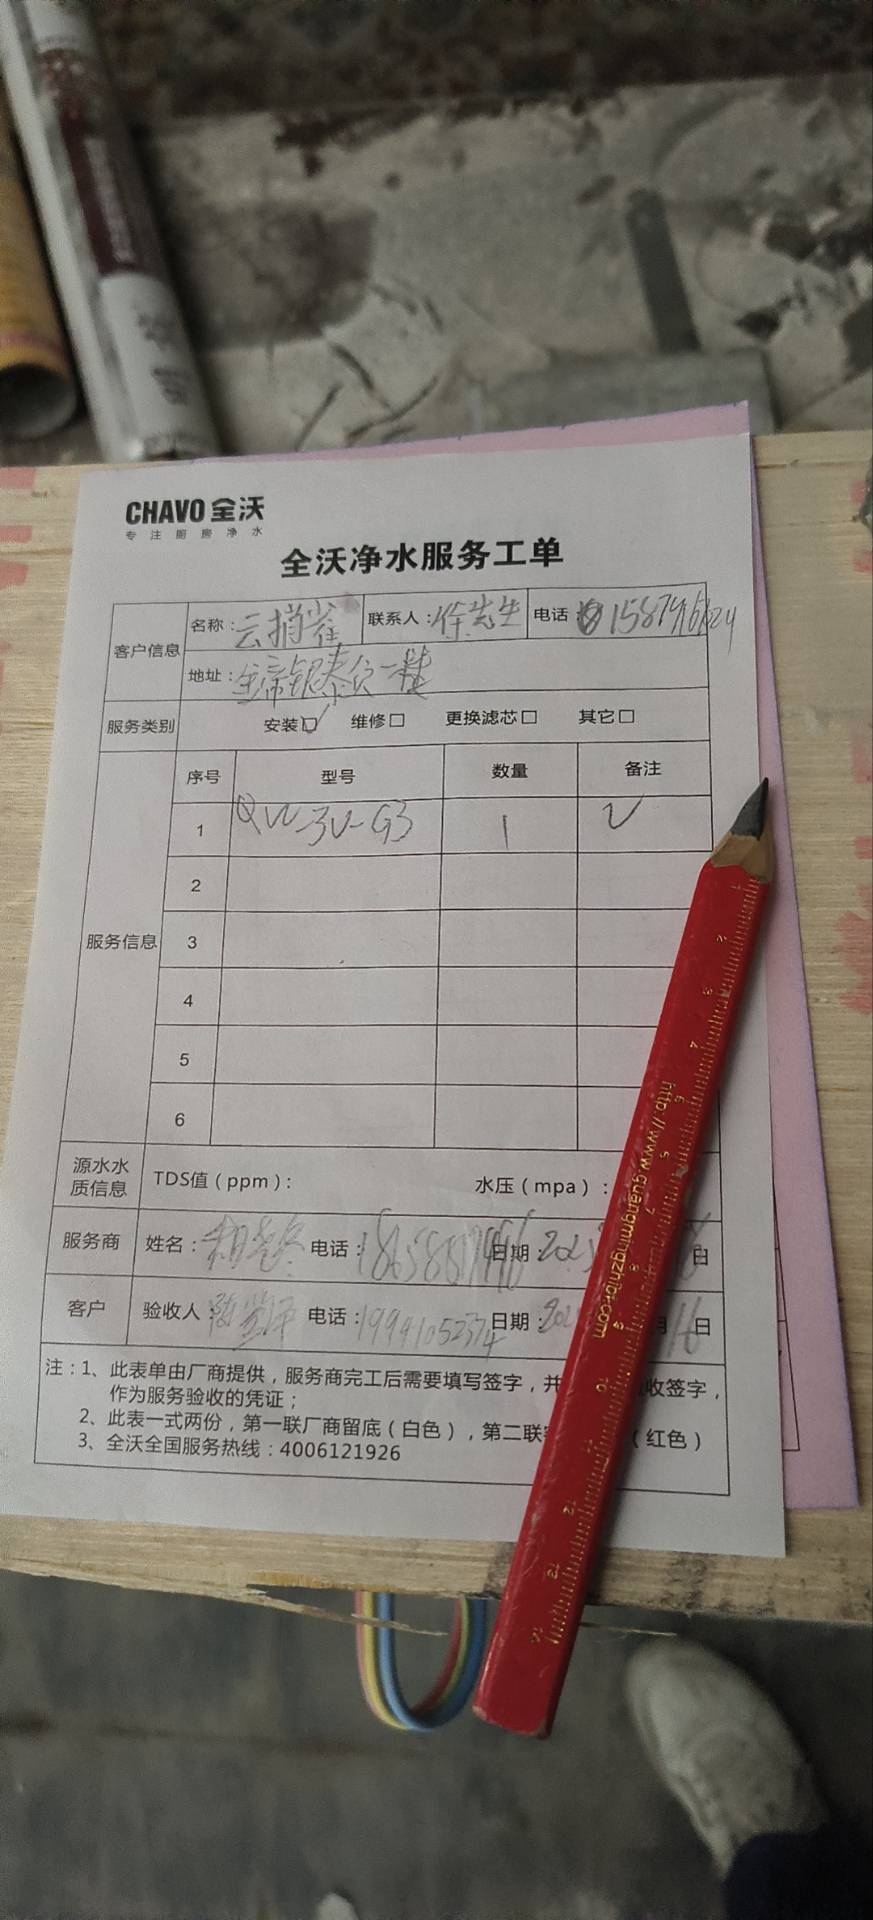 CHAVO 全沃
专注厨房净水
全沃净水服务工单
客户信息
名称：云捎雀
联系人：徐先生
电话：
地址：金帝银泰负一楼
服务类别
安装☑ 维修□ 更换滤芯□ 其它□
服务信息
序号 型号 数量 备注
1 QW-3U-G3 1 √
2
3
4
5
6
源水水质信息
TDS值（ppm）： 水压（mpa）：
服务商 姓名： 电话： 日期： 日
客户 验收人： 电话：19941052374 日期： 月16日
注：1、此表单由厂商提供，服务商完工后需要填写签字，并 收签字，
作为服务验收的凭证；
2、此表一式两份，第一联厂商留底（白色），第二联 （红色）
3、全沃全国服务热线：4006121926
http://www.guangmingzhibi.com
1 2 3 4 5 6 7 8 9 10 11 12 13 14